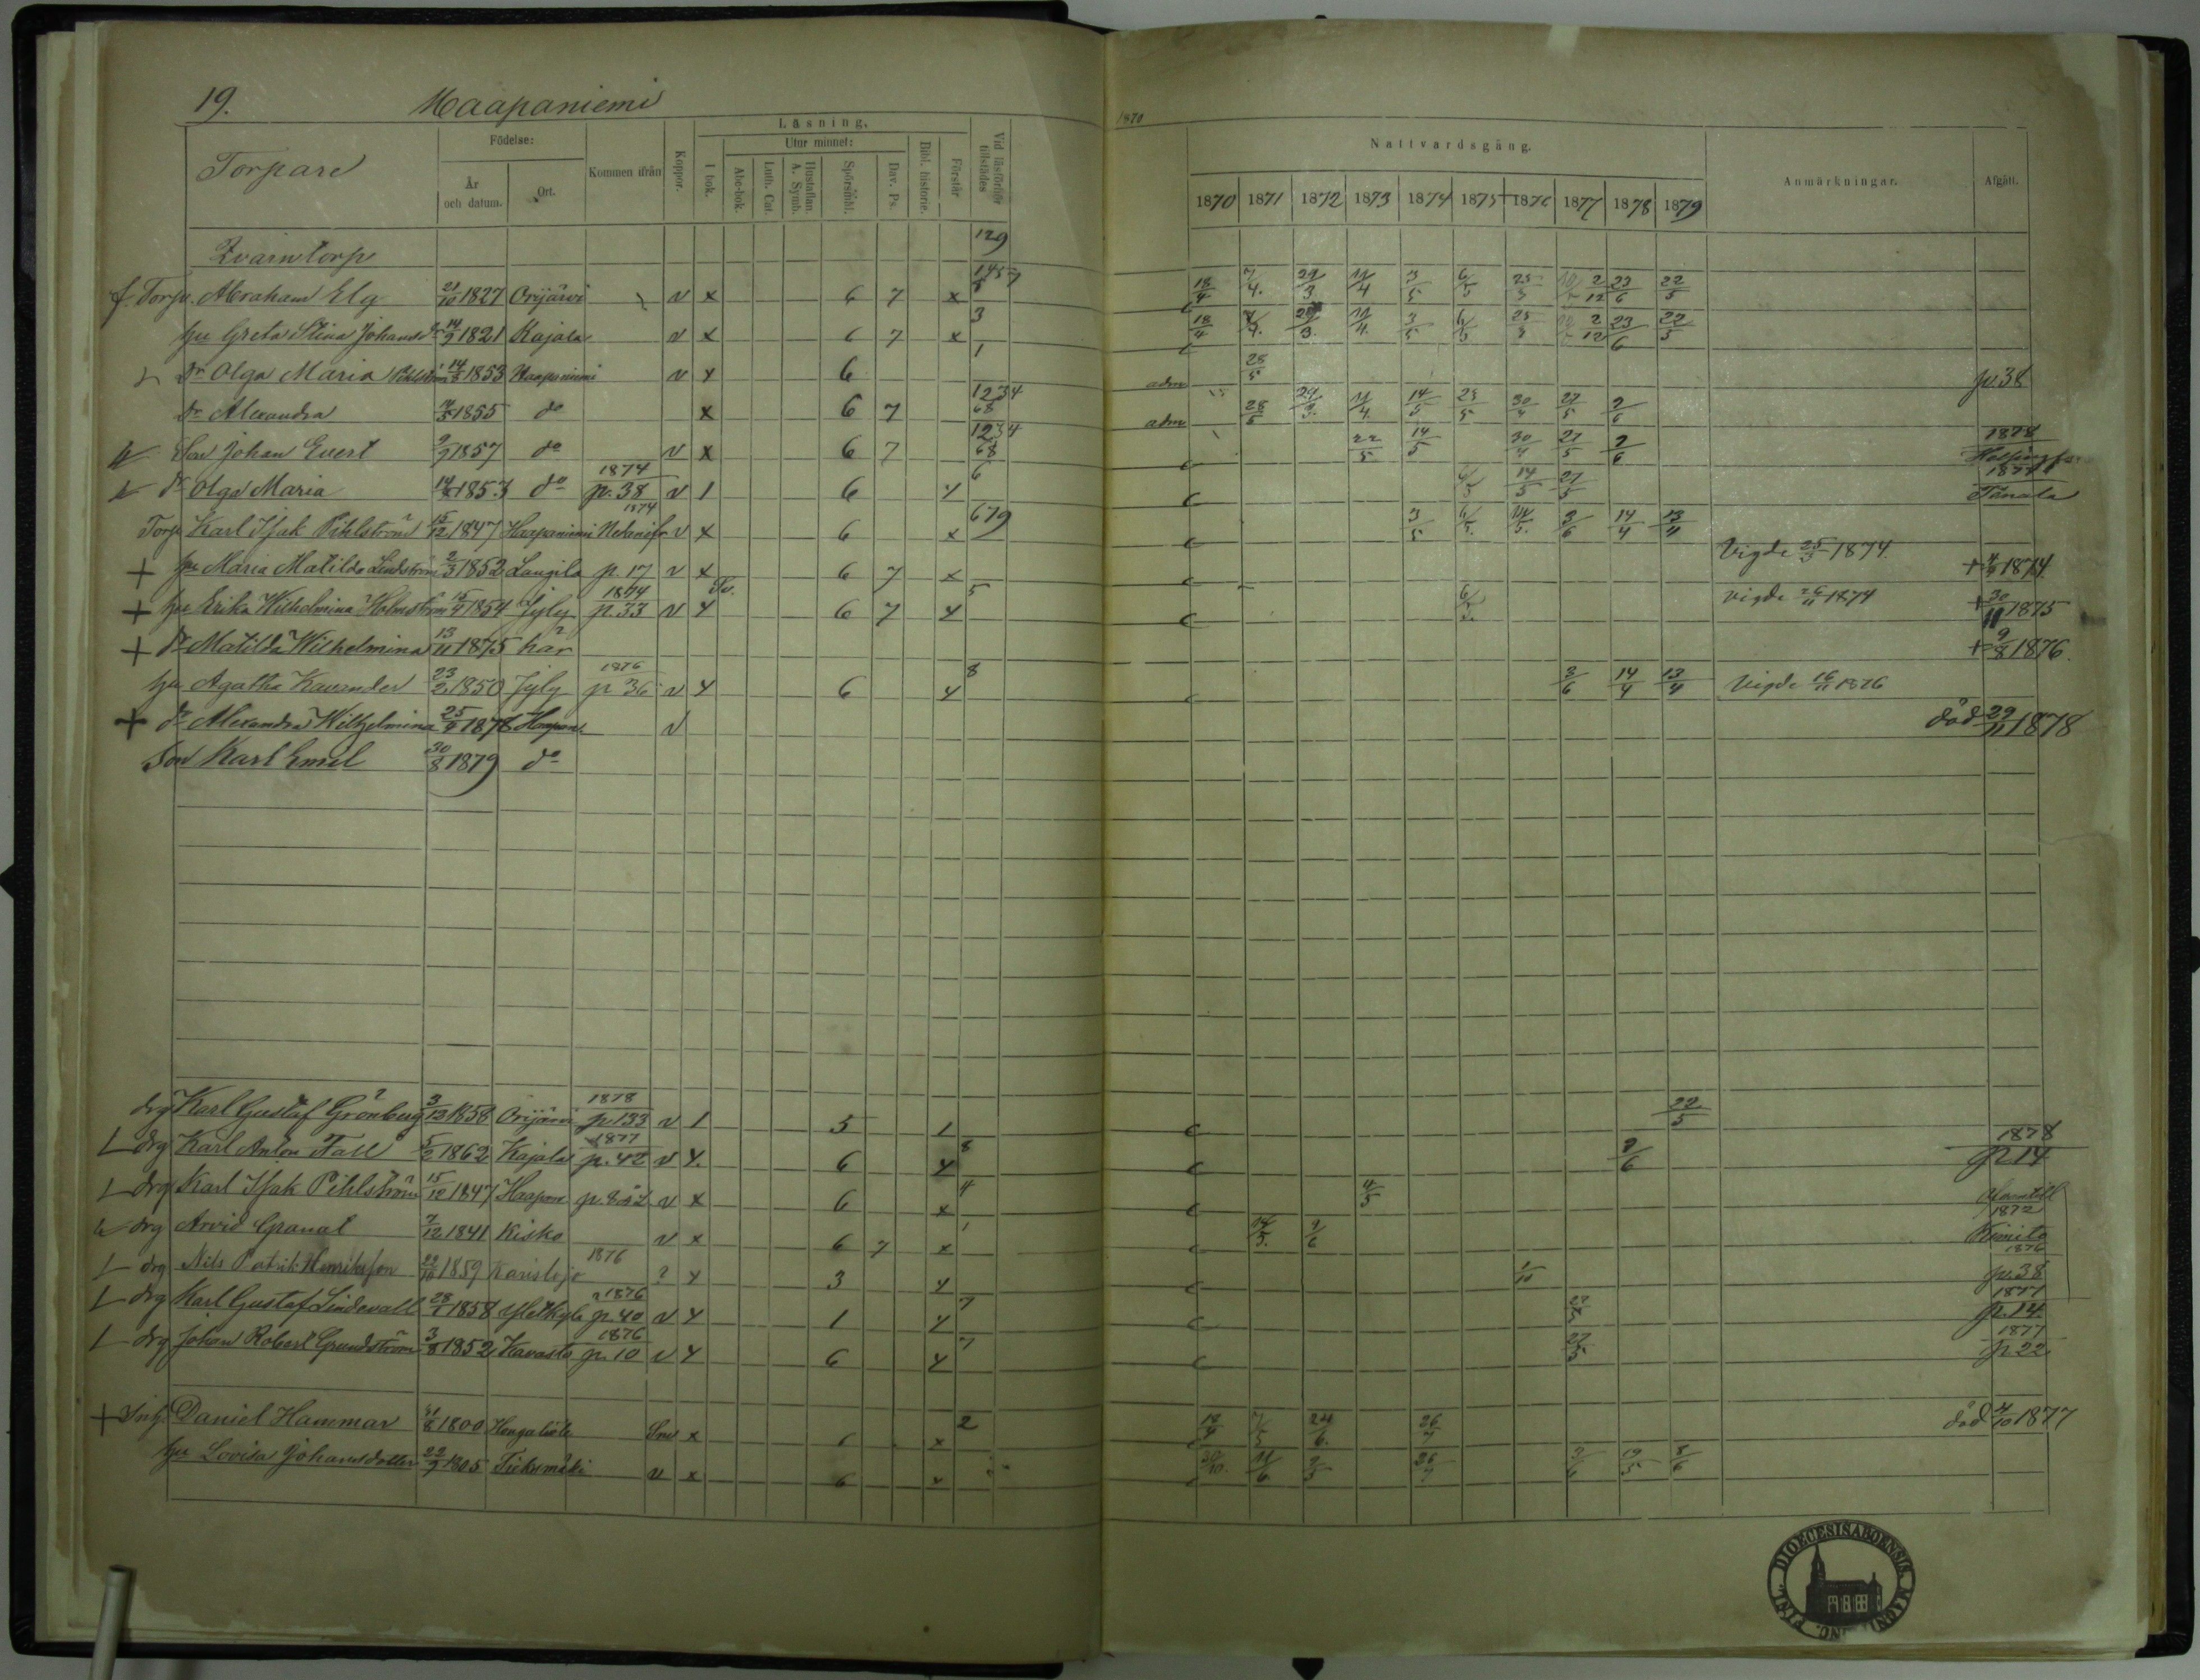 19. Haapaniemi
1870
Torpare
Födelse:
År och datum.
Ort.
Kommen ifrån
Koppor.
Läsning.
I bok.
Utur minnet:
Abc-bok.
Luth. Cat.
Hustaflan. A. Symb.
Spörsmål.
Dav. Ps.
Bibl. historie.
Förstår
Vid läsförhör tillstädes
Nattvardsgång.
1870 1871 1872 1873 1874 1875 1876 1877 1878 1879
Anmärkningar.
Afgått.
Qvarntorp 129
f. Torp. Abraham Ely 21/10 1827 Orijärvi v x 6 7 x 18/4 7/4. 29/3 11/4 3/5 6/5 25/3 2/12 23/6 22/5
hu Greta Stina Johansdr 14/9 1821 Kajala v x 6 7 x 3 18/4 7/4. 29/3. 11/4. 3/5 6/5 25/3 2/12 23/6 22/5
dr Olga Maria Pihlström 14/8 1853 Haapaniemi v y 6 1 adm 28/5 p. 38
dr Alexandra 1855 do x 6 7 1234 68 adm 28/5 29/3. 11/4. 14/5 23/5 30/4 27/5 2/6
Son Johan Evert 9/9 1857 do v x 6 7 1234 68 22/5 14/5 30/4 27/5 2/6 1878 Helsingfs
dr Olga Maria 14/8 1853 do 1874 p. 38 v 1 6 y 6 6/5 14/5 27/5 1877 Tenala
Torp Karl Isak Pihlström 15/12 1847 Haapaniemi 1874 v x 6 x 679 3/5 6/5. 14/5. 3/6 14/4 13/4
+ hu Maria Matilda Lindström 2/3 1852 Laugila p. 17 v x 6 7 x Vigde 25/3 1874. + 1874
+ hu Erika Wilhelmina Holmström 15/4 1854 Jyly 1874 p. 33 v y 6 7 y 5 vigde 26/11 1874 + 30/11 1875
+ dr Matilda Wilhelmina 13/11 1875 här + 9/8 1876.
hu Agatha Kavander 23/2 1850 Jyly 1876 p 36 v y 6 y 8 3/6 14/4 13/4 Vigde 16/11 1876
+ dr Alexandra Wilhelmina 25/9 1878 Haapan. v död 29/11 1878
Son Karl Emil 30/8 1879 do
drg Karl Gustaf Grönberg 3/12 1858 Orijärvi 1878 p. 133 v 1 5 1 22/5
drg Karl Anton Fall 5/2 1862 Kajala 1877 p. 42 v y. 6 y 8 2/6 1878 p. 14
drg Karl Isak Pihlström 15/12 1847 Haapan v x 6 x 4 4/5
drg Arvid Granat 7/12 1841 Kisko v x 6 7 x 1 14/5. 9/6 1872 Kimito
drg Nils Patrik Henriksson 22/10 1859 Karislojo 1876 ? y 3 y 1/10 1876 p. 38
drg Karl Gustaf Lindevall 28/1 1858 1876 p. 40 v y 1 y 7 27/5 1877 p. 14.
drg Johan Robert Grundström 3/8 1852 Kavasto 1876 p. 10 v y 6 y 7 27/5 1877 p. 22
+ Inh. Daniel Hammar 1800 x 6 x 2 18/4 7/5 24/6. 26/7 död 4/10 1877
hu Lovisa Johansdotter 22/9 1805 Tiekumäki v x 6 x 30/10. 11/6 9/5 26/7 3/6 19/5 8/6
FINL. DIOECESIS ABOENSIS MAGNI